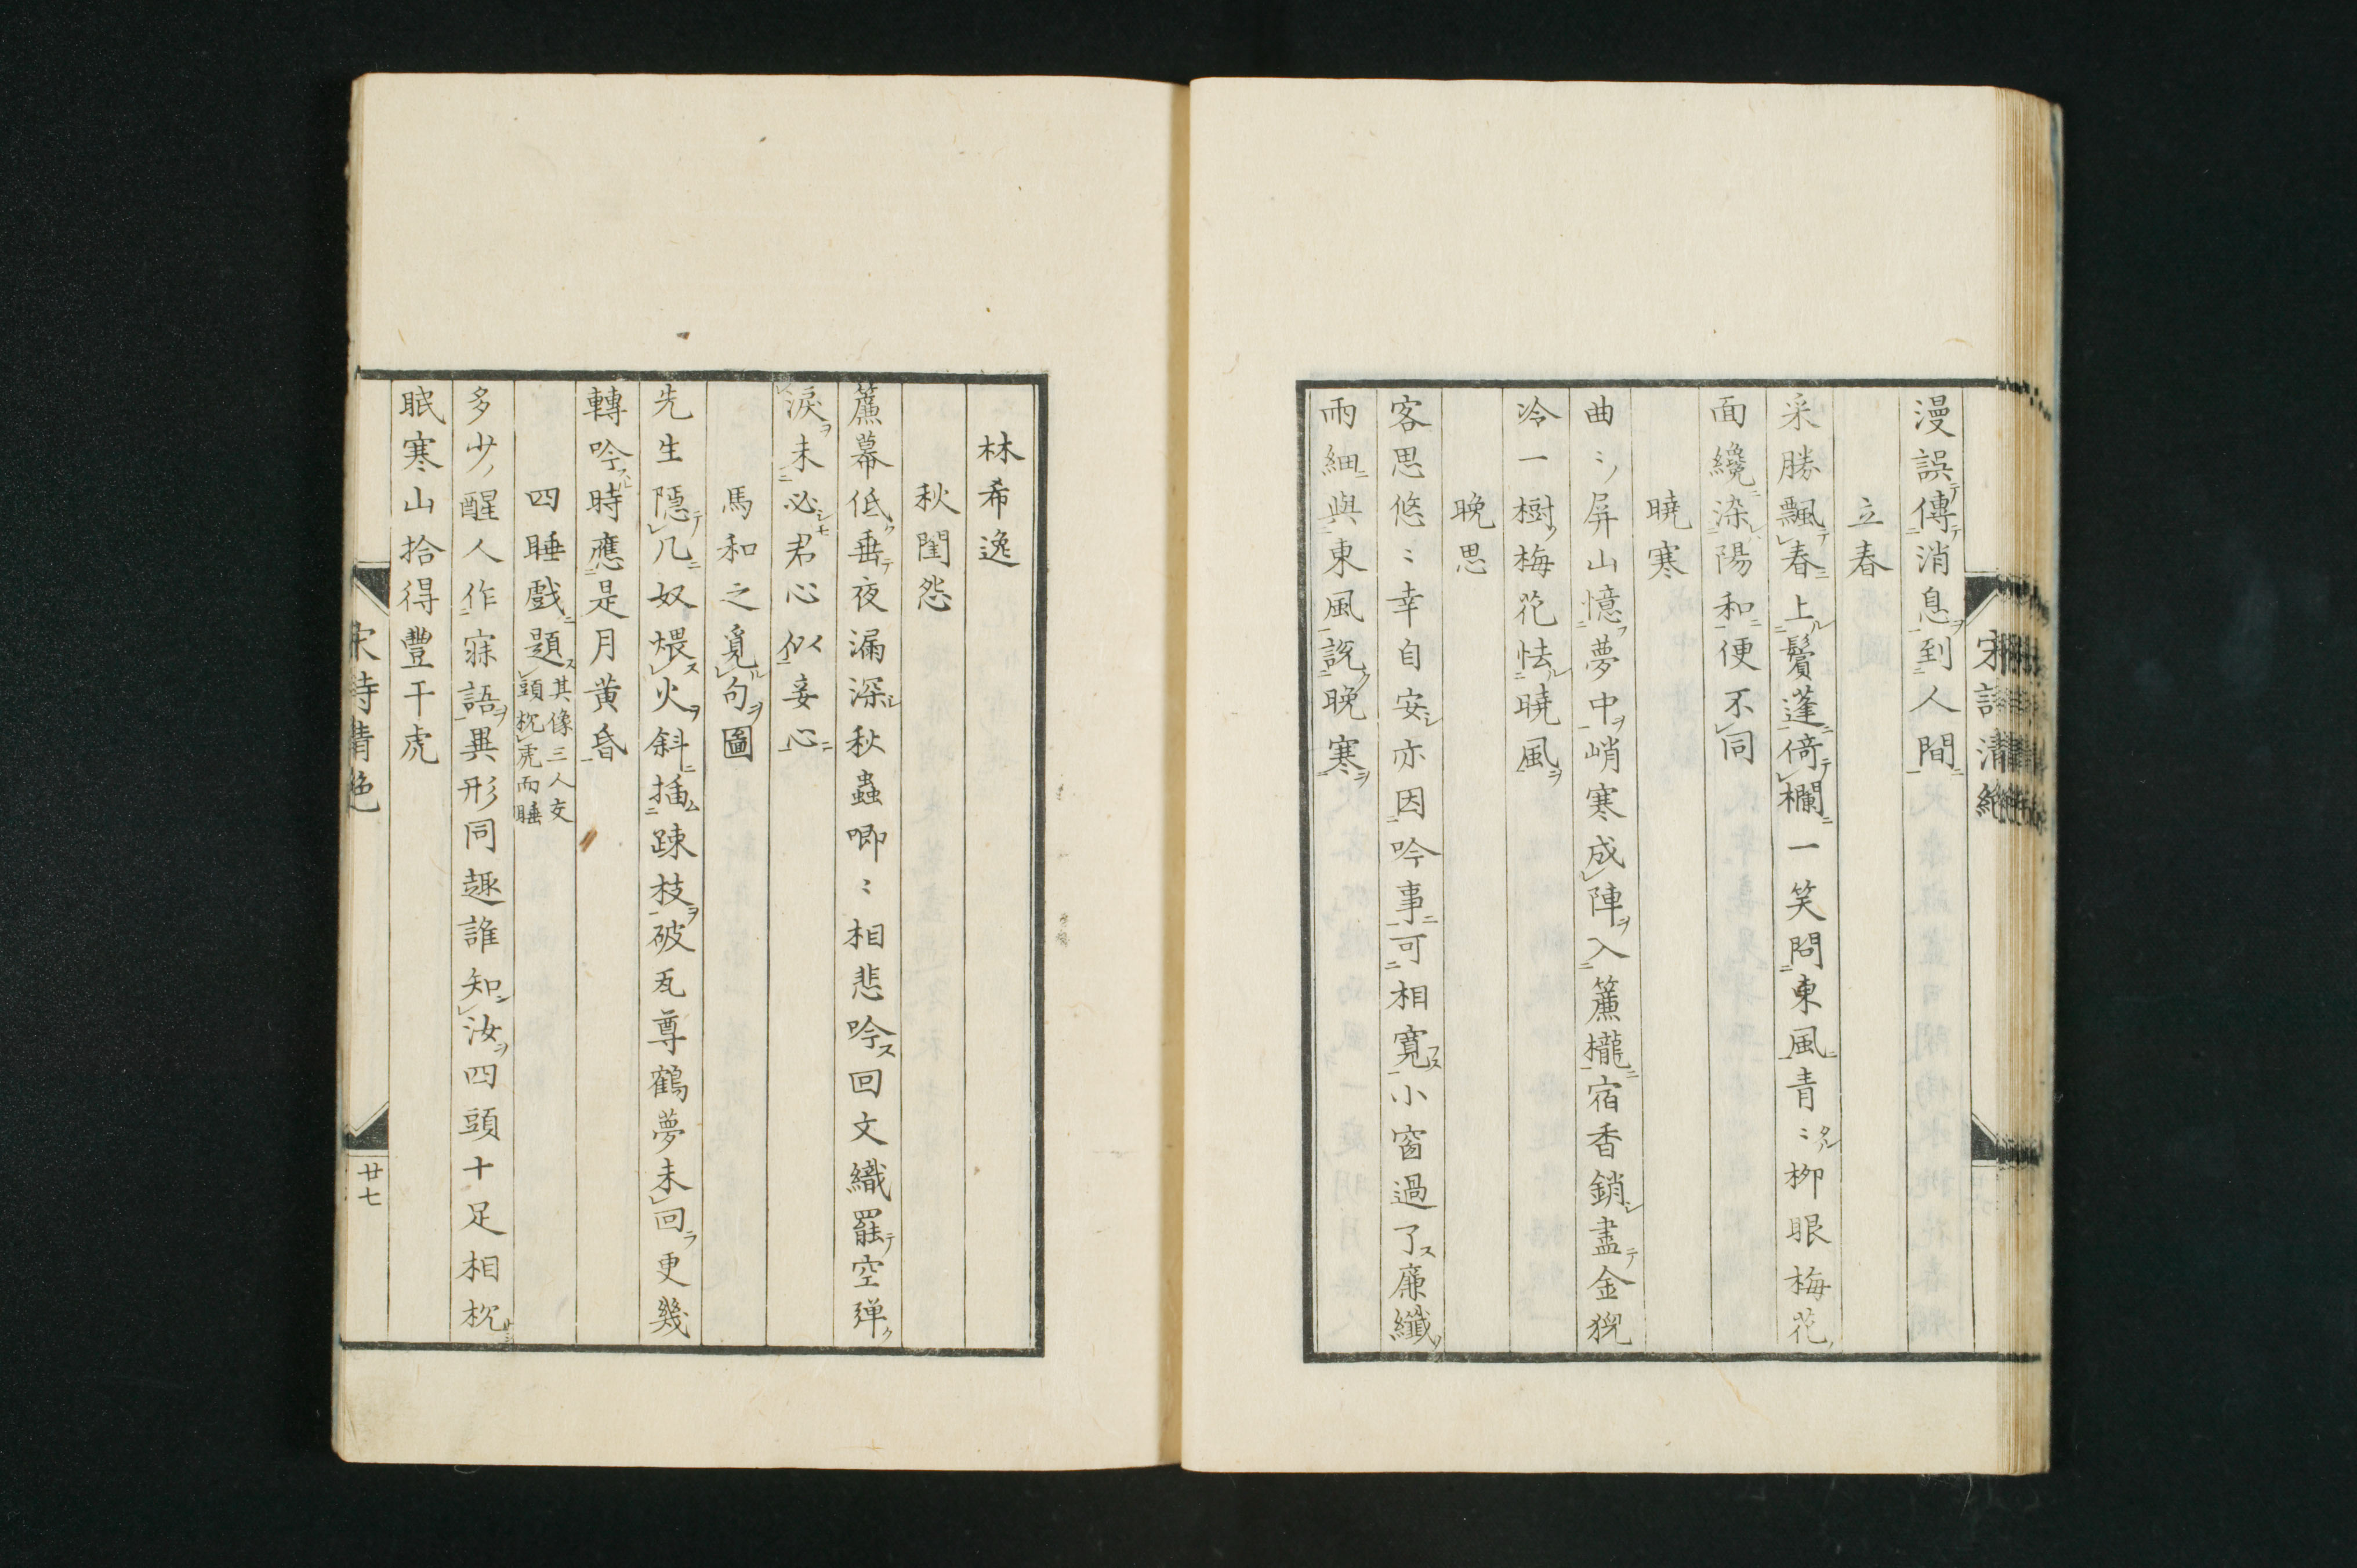 漫誤傳消息到人間
立春
采勝飄春上鬢蓬倚欄一笑問東風青〻柳眼梅花
面纔染陽和便不同
曉寒
曲〻屏山憶夢中峭寒成陣入簾櫳宿香銷盡金猊
冷一樹梅花怯曉風
晩思
客思悠〻幸自安亦因吟事可相寛小窗過了廉纖
雨細與東風説晩寒
林希逸
秋閨怨
簾幕低垂夜漏深秋蟲喞〻相悲吟回文織罷空弾
淚未必君心似妾心
馬和之覓句圖
先生隱几奴煨火斜插疎枝破瓦尊鶴夢未回更幾
轉吟時應是月黄昏
四睡戲題其像三人交頭枕虎而睡
多少醒人作寐語異形同趣誰知汝四頭十足相枕
眠寒山拾得豐干虎
宋詩清絶
廿七